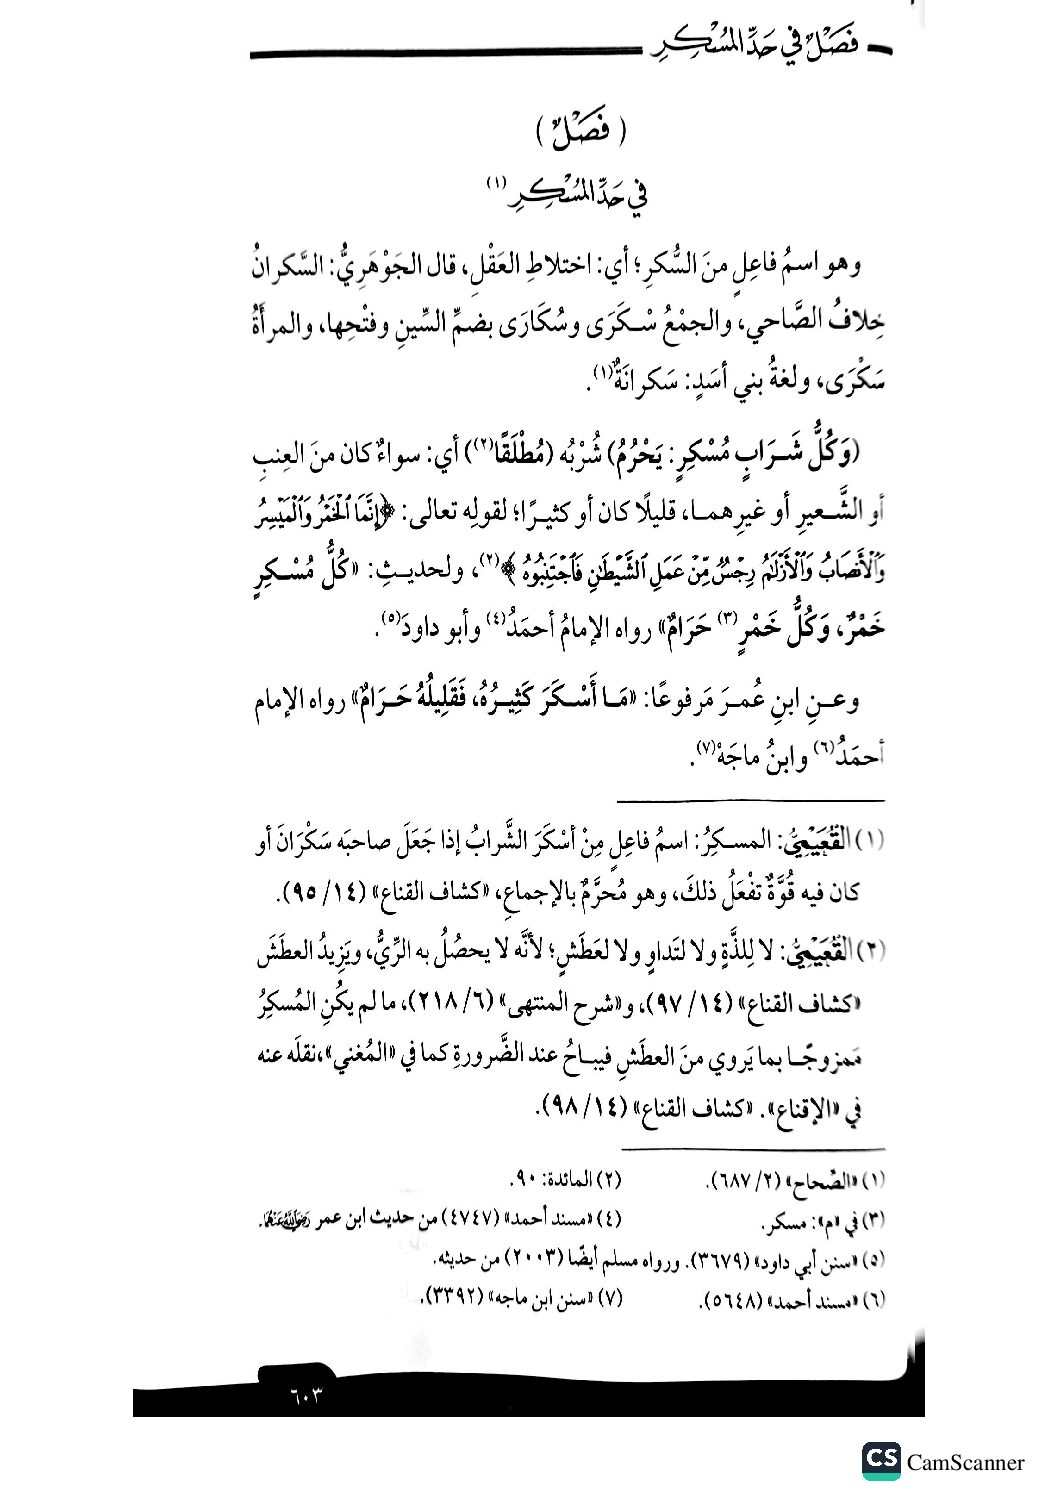 فَصْلٌ في حَدِّ المُسْكِرِ
( فَصْلٌ )
في حَدِّ المُسْكِرِ (١)
وهو اسمُ فاعِلٍ منَ السُّكرِ؛ أي: اختلاطِ العَقْلِ، قال الجَوْهَرِيُّ: السَّكرانُ
خِلافُ الصَّاحي، والجمْعُ سْكَرَى وسُكَارَى بضمِّ السِّينِ وفتْحِها، والمرأَةُ
سَكْرَى، ولغةُ بني أسَدٍ: سَكرانَةٌ(١).
(وَكُلُّ شَرَابٍ مُسْكِرٍ: يَحْرُمُ) شُرْبُه (مُطْلَقًا(٢)) أي: سواءٌ كان منَ العِنبِ
أو الشَّعيرِ أو غيرِهما، قليلًا كان أو كثيرًا؛ لقولِه تعالى: ﴿إِنَّمَا ٱلْخَمْرُ وَٱلْمَيْسِرُ
وَٱلْأَنصَابُ وَٱلْأَزْلَٰمُ رِجْسٌ مِّنْ عَمَلِ ٱلشَّيْطَٰنِ فَٱجْتَنِبُوهُ﴾(٢)، ولحديثِ: «كُلُّ مُسْكِرٍ
خَمْرٌ، وَكُلُّ خَمْرٍ(٣) حَرَامٌ» رواه الإمامُ أحمَدُ(٤) وأبو داودَ(٥).
وعنِ ابنِ عُمرَ مَرفوعًا: «مَا أَسْكَرَ كَثِيرُهُ، فَقَلِيلُهُ حَرَامٌ» رواه الإمام
أحمَدُ(٦) وابنُ ماجَهْ(٧).
(١) القُعَيْمِيُّ: المسكِرُ: اسمُ فاعِلٍ مِنْ أسْكَرَ الشَّرابُ إذا جَعَلَ صاحبَه سَكْرَانَ أو
كان فيه قُوَّةٌ تفْعَلُ ذلكَ، وهو مُحرَّمٌ بالإجماعِ، «كشاف القناع» (١٤/ ٩٥).
(٢) القُعَيْمِيُّ: لا لِلذَّةٍ ولا لتَداوٍ ولا لعَطَشٍ؛ لأنَّه لا يحصُلُ به الرِّيُّ، ويَزِيدُ العطَشَ
«كشاف القناع» (١٤/ ٩٧)، و«شرح المنتهى» (٦/ ٢١٨)، ما لم يكُنِ المُسكِرُ
ممزوجًا بما يَروي منَ العطَشِ فيباحُ عند الضَّرورةِ كما في «المُغني»،نقلَه عنه
في «الإقناع». «كشاف القناع» (١٤/ ٩٨).
(١) «الصِّحاح» (٢/ ٦٨٧).	(٢) المائدة: ٩٠.
(٣) في «م»: مسكر.	(٤) «مسند أحمد» (٤٧٤٧) من حديث ابن عمر رَضِيَ اللَّهُ عَنْهُمَا.
(٥) «سنن أبي داود» (٣٦٧٩). ورواه مسلم أيضًا (٢٠٠٣) من حديثه.
(٦) «مسند أحمد» (٥٦٤٨).	(٧) «سنن ابن ماجه» (٣٣٩٢).
٦٠٣
CS CamScanner